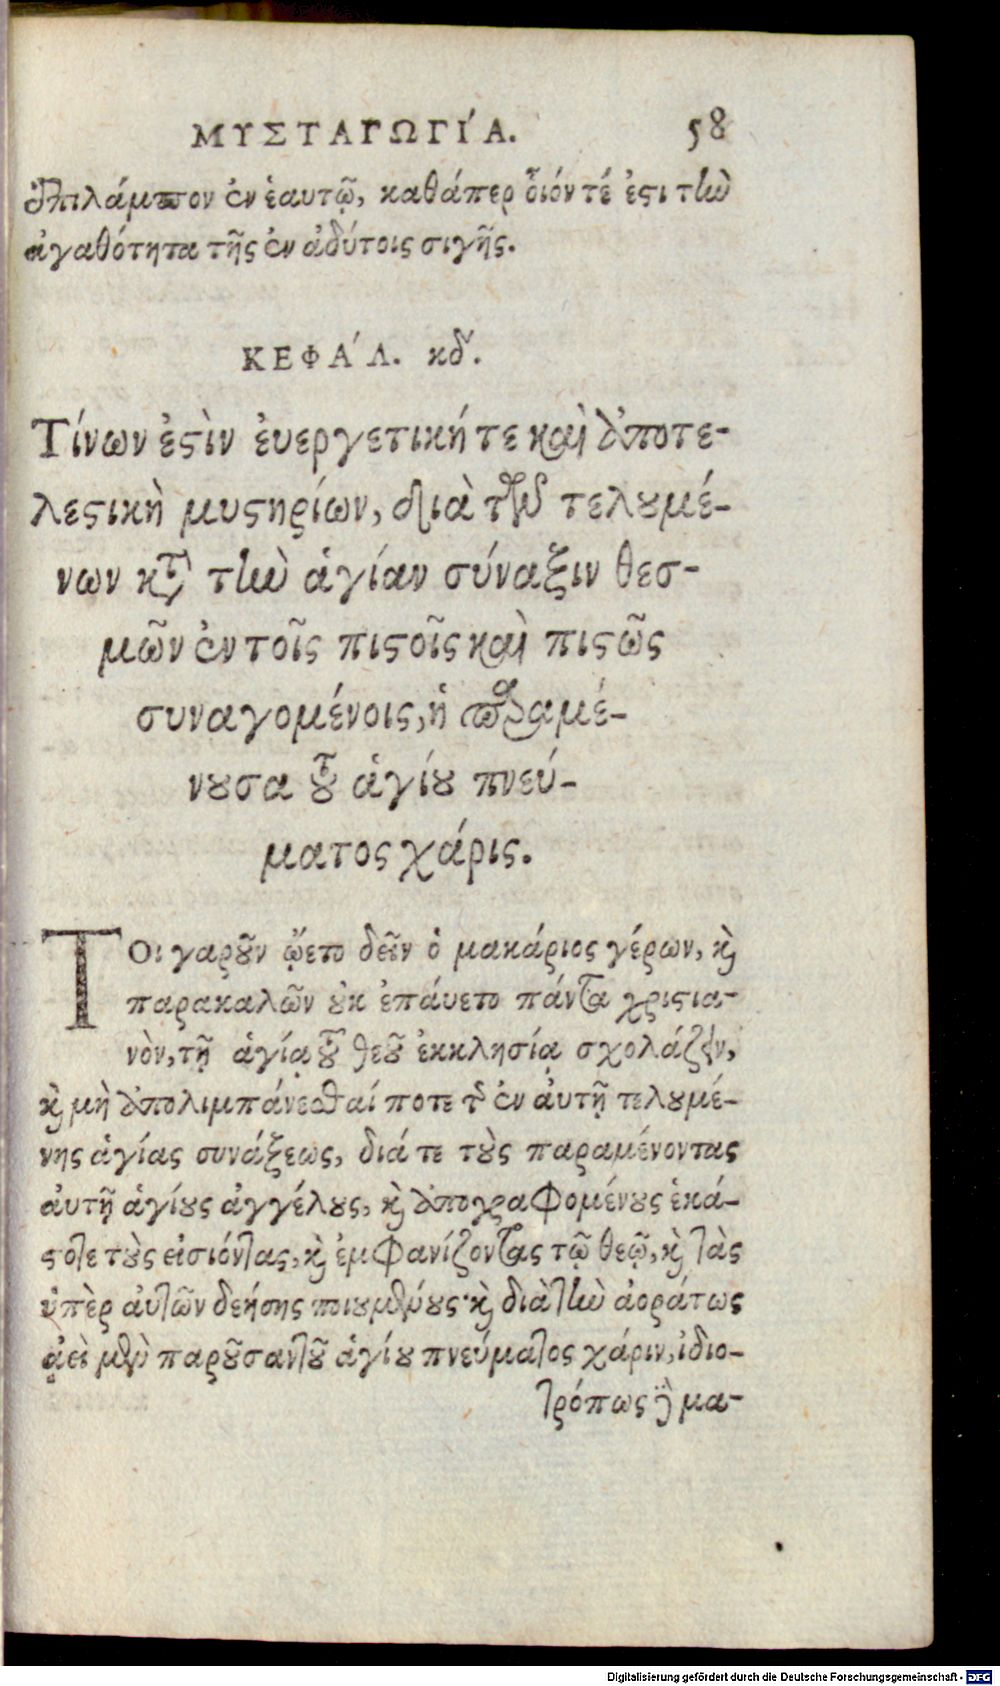 ΜΥΣΤΑΓΩΓΊΑ. 58
ἐπιλάμπον ἐν ἑαυτῷ, καθάπερ οἷόν τέ ἐστι τὴν
ἀγαθότητα τῆς ἐν ἀδύτοις σιγῆς.
ΚΕΦΆΛ. κδ΄.
Τίνων ἐστὶν ἐυεργετική τε καὶ ἀποτε-
λεστικὴ μυστηρίων, διὰ τῶν τελουμέ-
νων κατὰ τὴν ἁγίαν σύναξιν θεσ-
μῶν ἐν τοῖς πιστοῖς καὶ πιστῶς
συναγομένοις, ἡ παραμέ-
νουσα τοῦ ἁγίου πνεύ-
ματος χάρις.
ΤΟι γαροῦν ᾤετο δεῖν ὁ μακάριος γέρων, καὶ
παρακαλῶν οὐκ ἐπάυετο πάντα χριστια-
νὸν, τῇ ἁγίᾳ τοῦ θεοῦ ἐκκλησίᾳ σχολάζειν,
καὶ μὴ ἀπολιμπάνεσθαί ποτε τῆς ἐν ἀυτῇ τελουμέ-
νης ἁγίας συνάξεως, διά τε τοὺς παραμένοντας
ἀυτῇ ἁγίους ἀγγέλους, καὶ ἀπογραφομένους ἑκά-
στοτε τοὺς εἰσιόντας, καὶ ἐμφανίζοντας τῷ θεῷ, καὶ τὰς
ὑπὲρ ἀυτῶν δεήσης ποιουμένους· καὶ διὰ τὴν ἀοράτως
ἀεὶ μὲν παροῦσαν τοῦ ἁγίου πνεύματος χάριν, ἰδιο-
τρόπως δὲ μα-
Digitalisierung gefördert durch die Deutsche Forschungsgemeinschaft - DFG